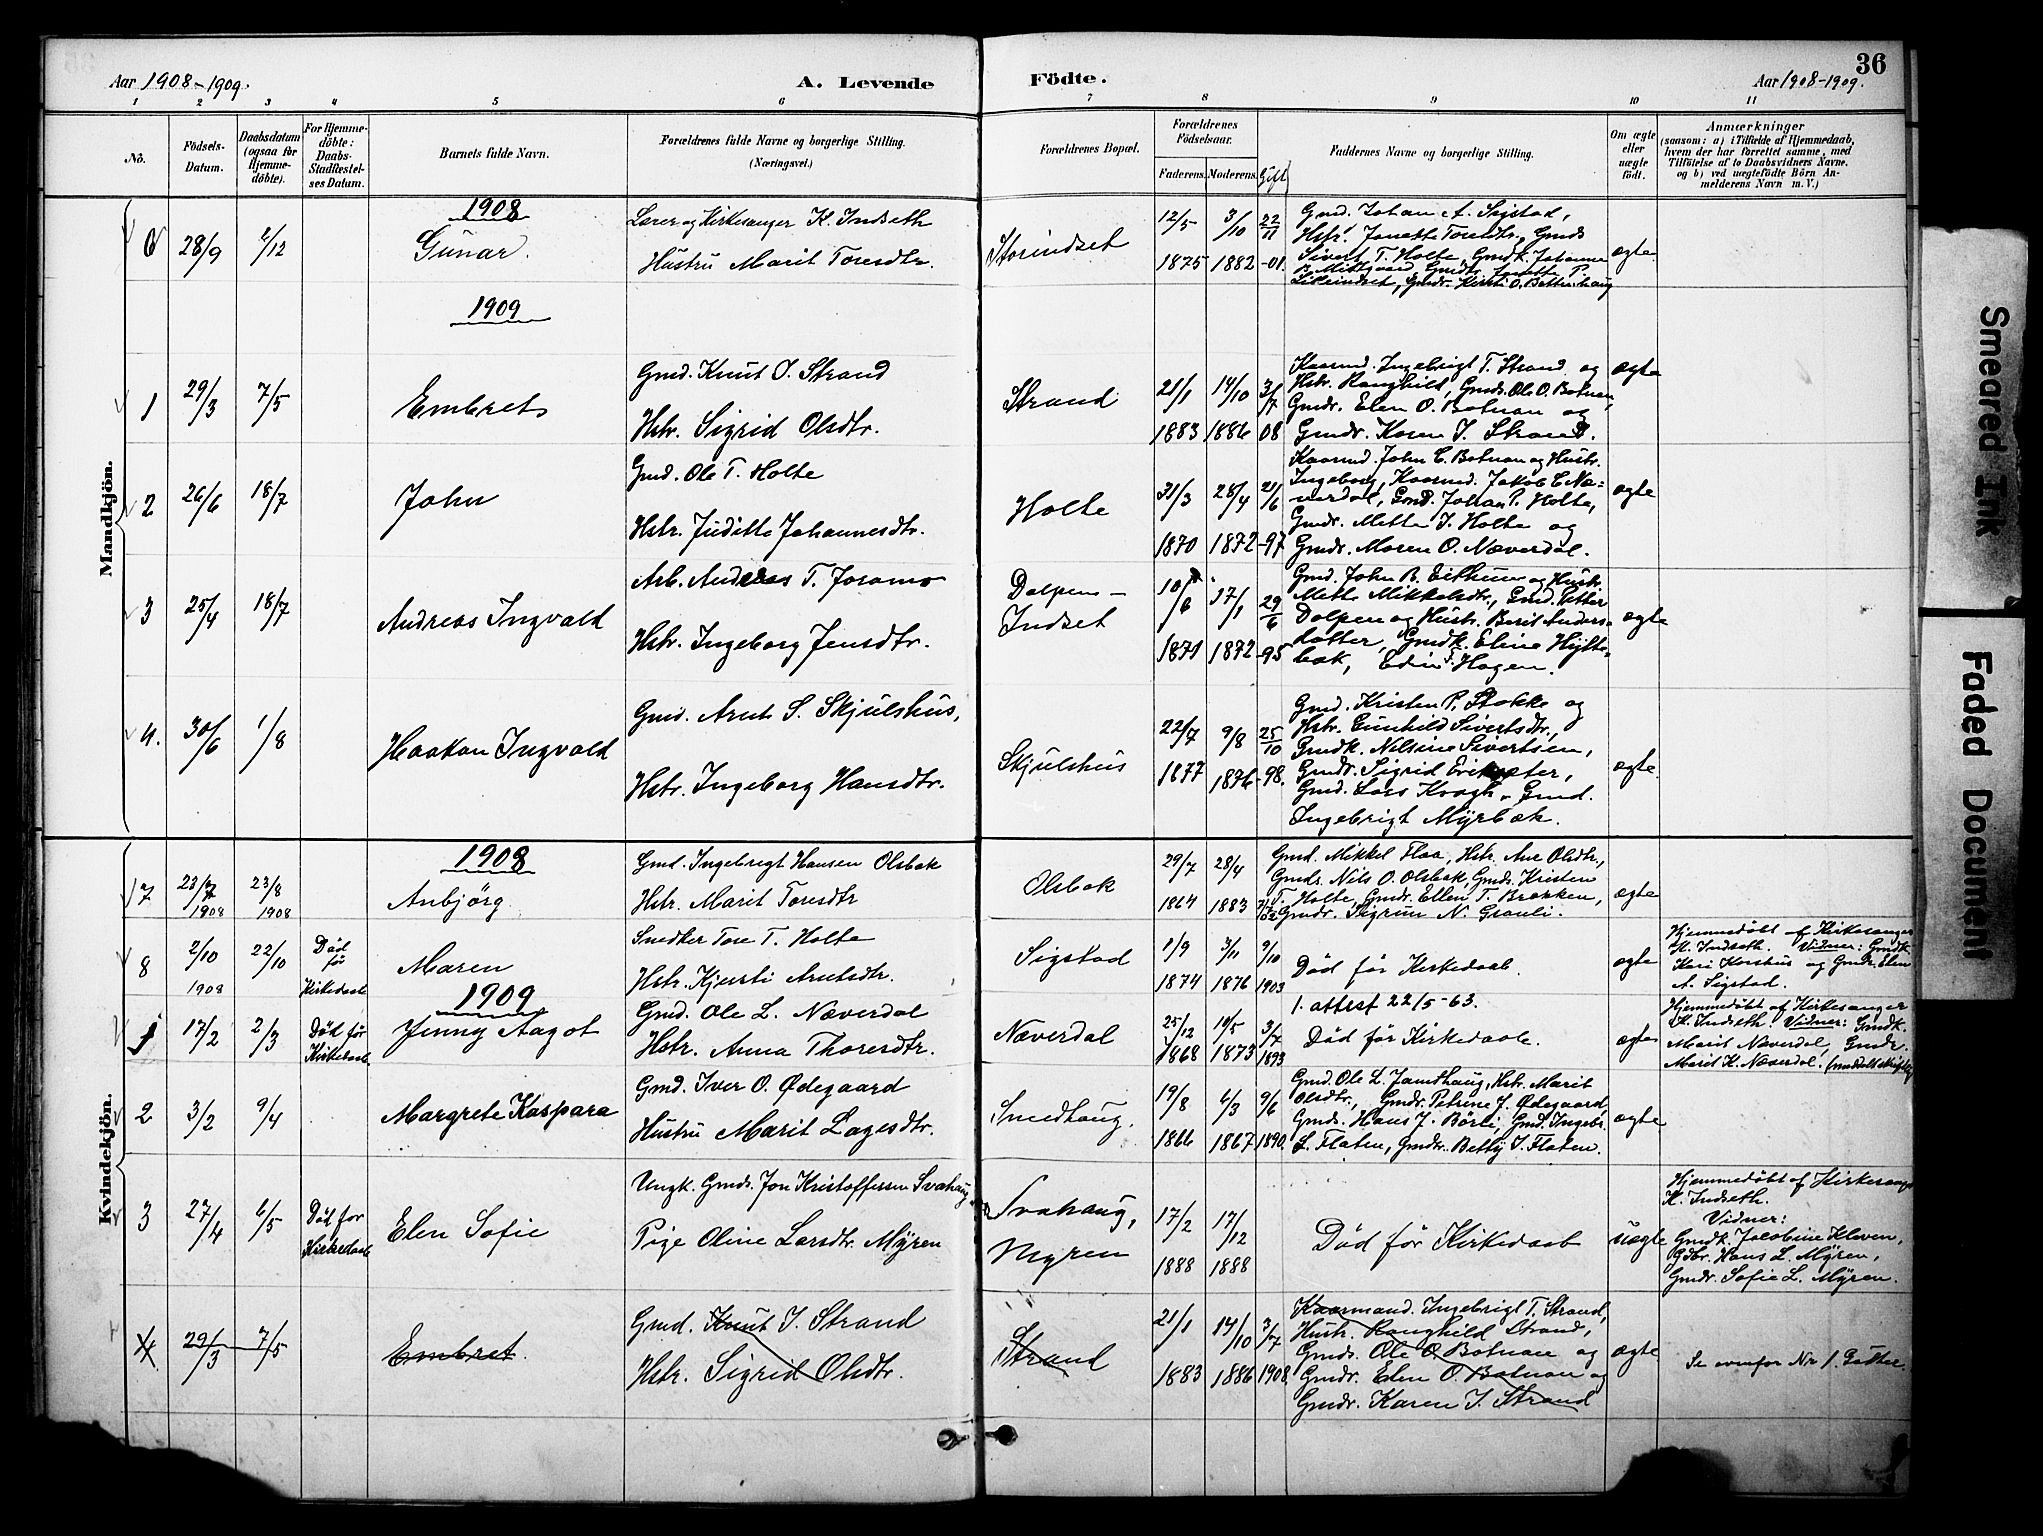 Aar 1908-1909.
A. Levende
Födte.
Aar 1908-1909.
36
1 2 3 4 5 6 7 8 9 10 11
No.
Födsels-
Datum.
Daabsdatum
(ogsaa for
Hjemme-
döbte).
For Hjemme-
döbte:
Daabs-
Stadfæstel-
ses Datum.
Barnets fulde Navn.
Forældrenes fulde Navne og borgerlige Stilling.
(Næringsvei.)
Forældrenes Bopæl.
Forældrenes
Födselsaar.
Faderens. Moderens.
Gift
Faddernes Navne og borgerlige Stilling.
Om ægte
eller
uægte
födt.
Anmærkninger
(saasom: a) i Tilfælde af Hjemmedaab,
hvem der har forrettet samme, med
Tilföielse af to Daabsvidners Navne.
og b) ved uægtefödte Börn An-
melderens Navn m. V.)
Mandkjön.
1908
6 28/9 2/12
Gunar.
Lærer og Kirkesanger K. Indseth
Hustru Marit Toresdtr.
Storindset
12/5 3/10 22/11
1875 1882 -01.
Gmd. Johan A. Sigstad,
Hstr. Jonette Toresdtr, Gmds
Sivert T. Holte, Gmdk. Johanne
Mittgaard, Gmdtr. Jonette P.
Lilleindset, Gmdr. Kirsti O. Bottenhaug
ægte
1909
1 29/3 7/5
Embret
Gmd. Knut I. Strand
Hstr. Sigrid Olsdtr.
Strand
21/1 14/10 3/7
1883 1886 08
Kaarmd. Ingebrigt T. Strand og
Hstr. Ranghild, Gmds. Ole O. Botnan,
Gmdr. Elen O. Botnan og
Gmdr. Karen I. Strand.
ægte
2 26/6 18/7
John
Gmd. Ole T. Holte
Hstr. Juditte Johannesdtr.
Holte
31/3 28/4 21/6
1870 1872 -97
Kaarmd. John C. Botnan og Hustr.
Ingeborg, Kaarmd. Jakob E Næ-
verdal, Gmd. Johan P. Holte,
Gmdr. Mette J. Holte og
Gmdr. Maren O. Næverdal.
ægte
3 25/4 18/7
Andreas Ingvald
Arb. Andreas T. Joramo
Hstr. Ingeborg Jensdtr.
Dalpen-
Indset
17/1 29/6
1871 1872 -95
Gmd. John B. Eithun og Hustr.
Mette Mikkelsdtr., Gmd. Petter
Dolpen og Hustr. Berit Anders-
datter, Gmdk. Eline Hylte-
bak, Edin Hagen.
ægte
4. 30/6 1/8
Haakon Ingvald
Gmd. Arnt S. Skjulshus,
Hstr. Ingeborg Hansdtr.
Skjulshus
22/7 9/8 25/10
1877 1876 -98.
Gmd. Kristen P. Stokke og
Hstr. Gunhild Sivertsdtr,
Gmdk. Nilsine Sivertsen,
Gmdr. Sigrid
Gmd. Lars Kragh, Gmd.
Ingebrigt Myrbæk.
ægte.
Kvindekjön.
1908
7 23/7 1908 23/8 1908
Anbjörg.
Gmd. Ingebrigt Hansen Olsbak
Hstr. Marit Toresdtr
Olsbak
29/7 28/4
1864 1883
Gmd. Mikkel Flaa, Hstr. Ane Olsdtr.,
Gmds. Nils O. Olsbak, Gmds. Kristen
T. Holte, Gmdr. Ellen T. Brækken,
Gmdr. Sigrun N. Granli.
ægte
8 2/10 1908 22/10
Död
før
Kirkedaab
Maren
Snedker Tore T. Holte
Hstr. Kjersti Arntsdtr.
Sigstad
1/9 3/11 9/10
1874 1876 1903
Död før Kirkedaab.
ægte
Hjemmedöbt af Kirkesanger
K. Indseth. Vidner: Gmdk
Kari Korshus og Gmdr. Elen
A. Sigstad.
1909
1 17/2 2/3
Död før
Kirkedaab
Jenny Aagot
Gmd. Ole L. Næverdal
Hstr. Anna Thoresdtr.
Næverdal
25/12 10/5 3/7
1868 1873 1893
1. attest 22/5-63.
Död før Kirkedaab.
ægte
Hjemmedöbt af Kirkesanger
K. Indseth. Vidner: Gmdk.
Marit Næverdal, Gmdr.
Marit K. Næverdal.
2 3/2 9/4
Margrete Kaspara
Gmd. Iver O. Ødegaard
Hustru Marit Lagesdtr.
Smedhaug.
19/8 6/3 9/6
1866 1867 1890.
Gmd. Ole L. Jamthaug, Hstr. Marit
Olsdtr., Gmdr. Petrine J. Ødegaard,
Gmds. Hans J. Börli, Gmd. Ingebr.
L. Flaten, Gmdr. Betty I. Flaten.
ægte
3 27/4 6/5
Död før
Kirkedaab
Elen Sofie
Ungk. Gmds. Jon Kristoffersen Svahaug
Pige Oline Larsdtr. Myren
Svahaug,
Myren
17/2 17/12
1888 1888
Död før Kirkedaab
uægte
Hjemmedöbt af Kirkesanger
K. Indseth.
Vidner:
Gmdk. Jacobine Kleven,
Gdbr. Hans L. Myren,
Gmdr. Sofie L. Myren.
4 29/3 7/5
Embret.
Gmd. Knut I. Strand
Hstr. Sigrid Olsdtr.
Strand
21/1 14/10 3/7
1883 1886 1908.
Kaarmand. Ingebrigt T. Strand,
Hustr. Ranghild Strand,
Gmds. Ole O. Botnan og
Gmdr. Elen O. Botnan og
Gmdr. Karen I. Strand
ægte
Se ovenfor Nr 1. Gutter.
Smeared Ink
Faded Document